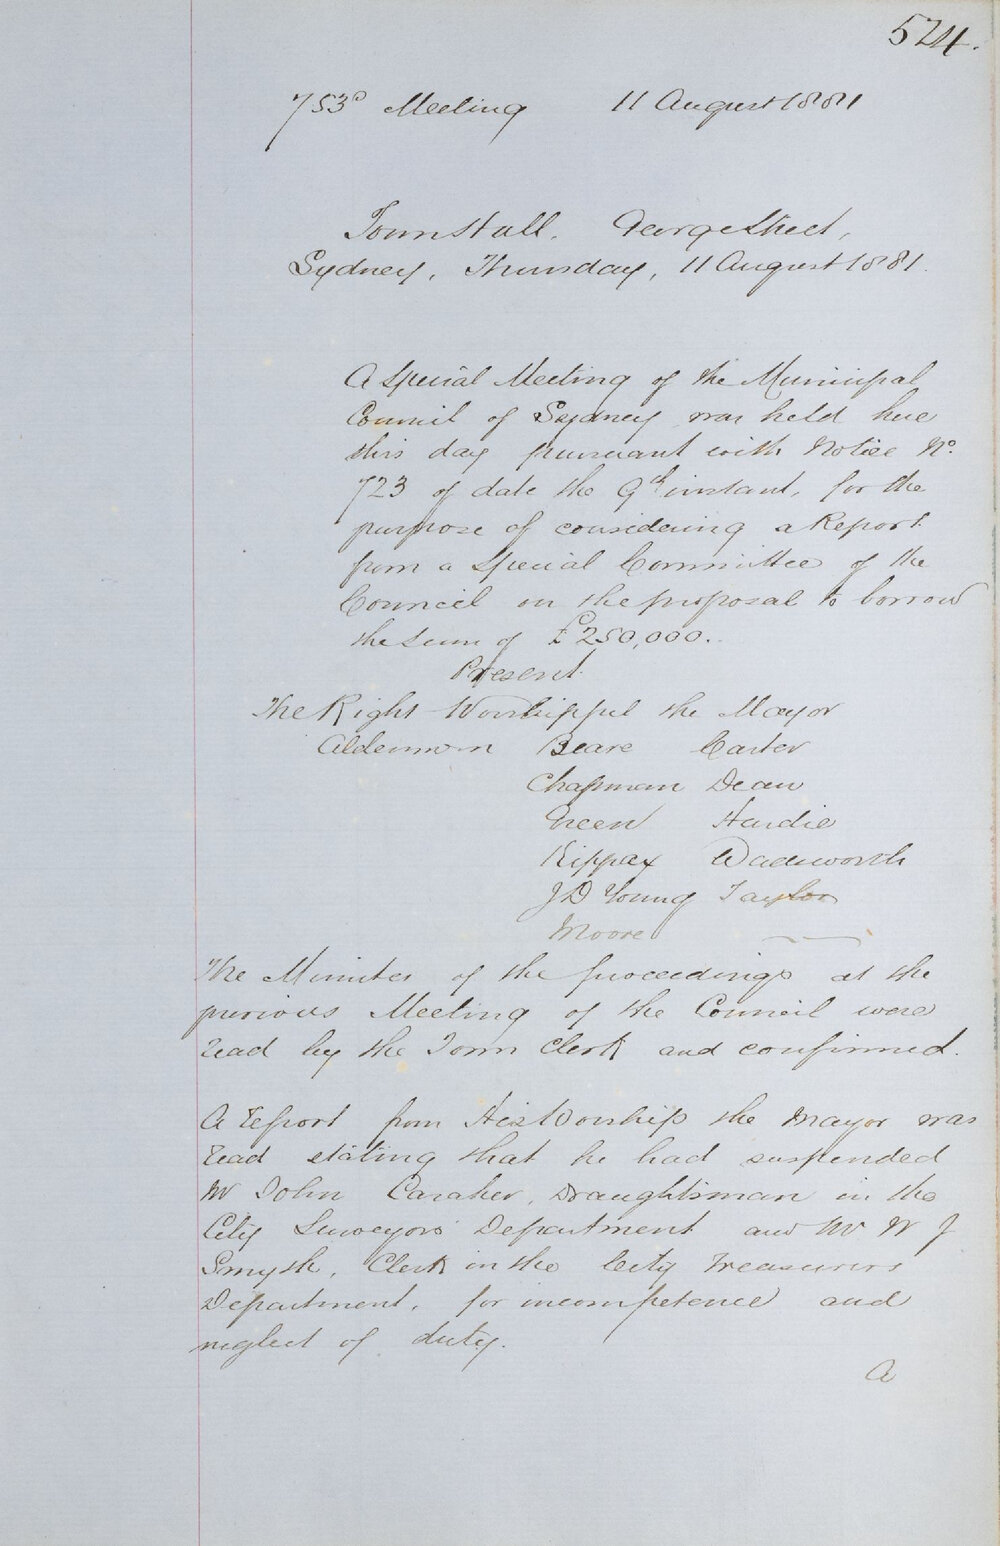 524.
753d Meeting 11 August 1881
Town Hall, George Street,
Sydney, Thursday, 11 August 1881.
A Special Meeting of the Municipal
Council of Sydney was held here
this day pursuant with Notice No.
723 of date the 9th instant, for the
purpose of considering a Report
from a Special Committee of the
Council on the proposal to borrow
the sum of £250,000.
Present
The Right Worshipful the Mayor
Aldermen Beare Carter
Chapman Dean
Green Hardie
Kippax Wadsworth
J D Young Taylor
Moore
The Minutes of the proceedings at the
previous Meeting of the Council were
read by the Town Clerk and confirmed.
A report from His Worship the Mayor was
read stating that he had suspended
Mr John Caraher, Draughtsman in the
City Surveyors Department and Mr W J
Smyth, Clerk in the City Treasurers
Department, for incompetence and
neglect of duty.
A